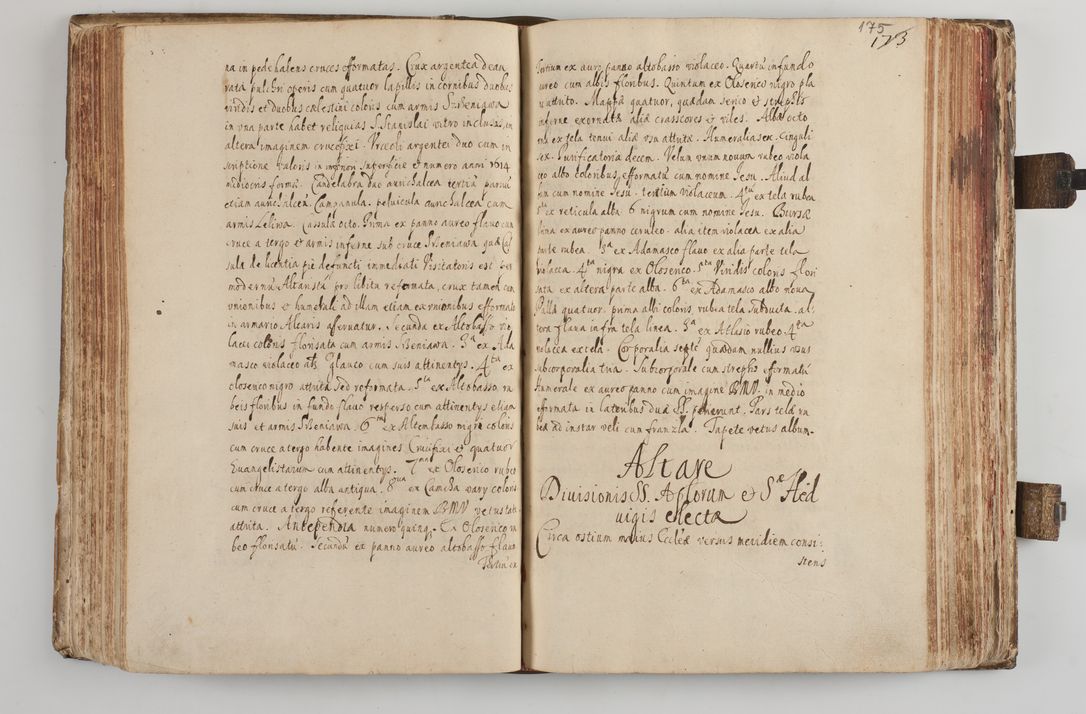 na in pede habens cruces efformatas. Crux argentea deau
rata pulchri operis cum quatuor lapillis in cornibus duobus
viridis et duobus celestini coloris cum armis Srzeniawa
in vna parte habet reliquias S. Stanislai vitro inclusas, in
altera imaginem crucifixi. Vrceoli argentei duo cum in
scriptione valoris in superficie et numero anni 1614
mediocris formæ. Candelabra duo aurichalcea tertiū parvū
etiam aurichalceū. Campanula. peluicula aurichalcea cum
armis Leliwa. Casulæ octo. Prima ex panno aureo flauo cum
cruce a tergo et armis inferne sub cruce Srzeniawa quæ Ca
sula de licentia piè defuncti immediati Visitatoris est per
modernū Altaristā pro libitu reformata, crux tamen cum
vnionibus et humerali ad illam etiam ex vnionibus efformato
in armario Altaris asseruatur. Secunda ex Altobasso vio
lacei coloris florisata cum armis Srzeniawa. 3ª ex Ada
masco violaceo glauco cum suis attinentys. 4ta ex
olosenco nigro attrita sed reformata. 5ta ex Altobasso ru
beis floribus in fundo flauo resperso cum attinentys etiam
suis et armis Srzeniawa. 6ta ex Altembasso nigri coloris
cum cruce a tergo habente imagines Crucifixi et quatuor
Euangelistarum cum attinentys. 7ma ex Olosenco rubeo
cum cruce a tergo alba antiqua. 8ua ex Camcha vary coloris
cum cruce a tergo referente imaginem BMV vetustate
attrita. Antependia numero quinq. Ex Olosenco ru
beo florisatū. Secundū ex panno aureo altobasso flauo
Tertiū ex
175
173
Tertium ex auro panno altobasso violaceo. Quartū in fundo
aureo cum albis floribus. Quintum ex Olosenco nigro pla
attrito. Mappæ quatuor, quædam serico et strephis
inferne exornatæ aliæ crassiores et viles. Albæ octo
vna ex tela tenui aliæ vsu attritæ. Humeralia sex. Cinguli
sex. Purificatoria decem. Velum vnum nouum rubeo viola
ceo albo coloribus efformatū cum nomine Jesu. Aliud al
bum cum nomine Jesu. tertium violaceum. 4tū ex tela rubea
5tū ex reticula alba. 6 nigrum cum nomine Jesu. Bursæ
vna ex aureo panno ceruleo. alia item violacea ex alia
parte rubea. 3ª ex Adamasco flauo ex alia parte tela
violacea. 4ta nigra ex Olosenco. 5ta Viridis coloris flori
sata ex altera parte alba. 6ta ex Adamasco albo noua
Pallæ quatuor. prima albi coloris, rubea tela subducta. al
tera flaua infra tela linea. 3ª ex Atlasio rubeo. 4ta
violacea ex tela. Corporalia septē quædam nullius vsus
subcorporalia tria. Subcorporale cum strephis efformatū
Humerale ex aureo panno cum imagine BMV in medio
efformata in lateribus duæ SS. perierunt. Pars telæ ru
beæ ad instar veli cum franzla. Tapete vetus album.
Altare
Diuisionis SS. Aplorum et Sæ Hed
uigis electæ
Circa ostium maius Eccleæ versus meridiem consi:
stens